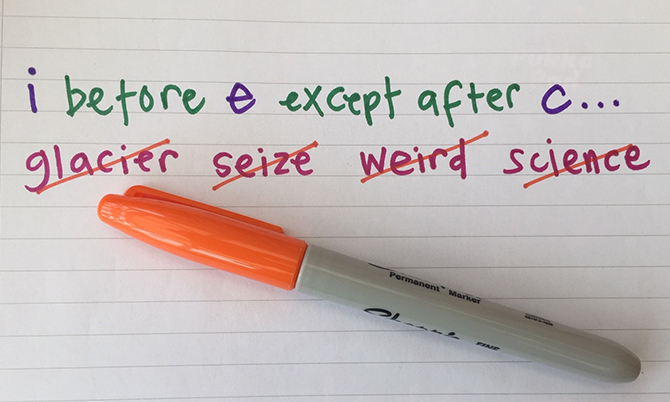 i before e except after c...
glacier seize weird science
Permanent Marker
Sharpie
FINE